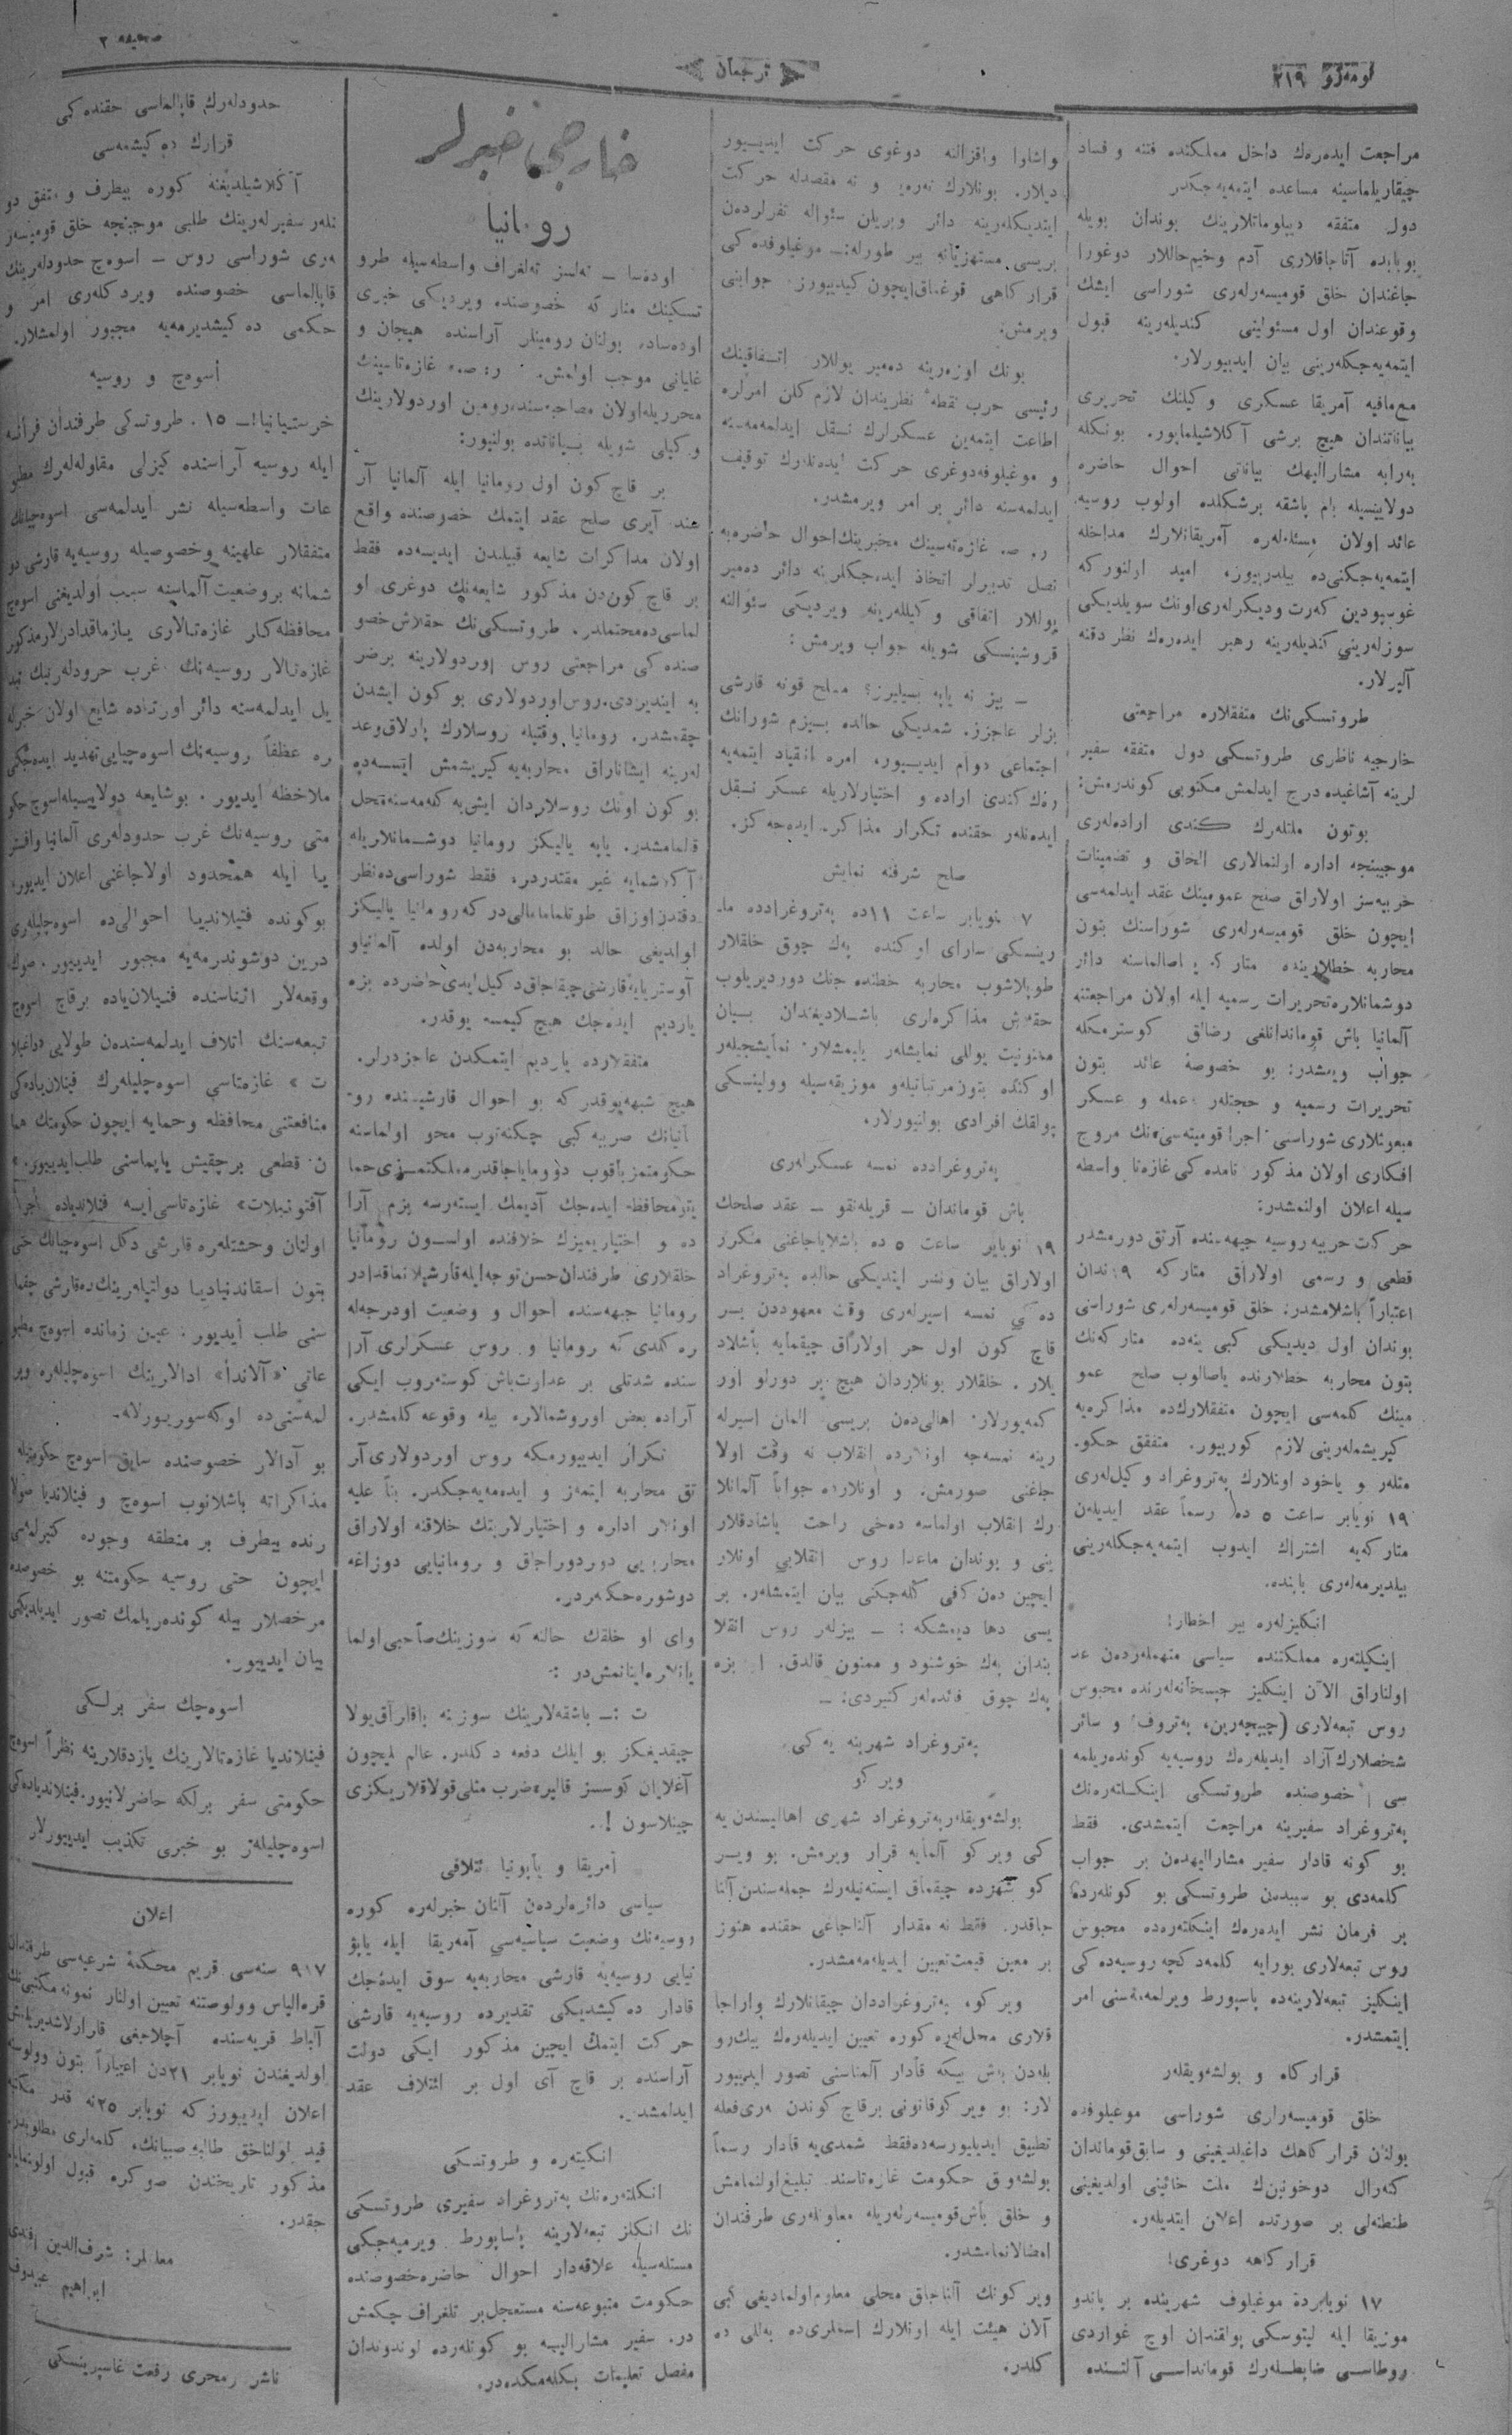 نومەرو ۲۱۹
ترجمان
صحیفه ۳
مراجعت ایدەرەك داخل مملكتنده فتنه و فساد
چیقاریلماسینه مساعده ایتمەیەجكدر
دول متفقه دیپلوماتلارینك بوندان بویله
بوبابده آتاجاقلاری آدم وخیم‌حاللار دوغورا
جاغندان خلق قومیسەرلەری شوراسی ایشك
وقوعندان اول مسئولیتی كندیلەرینه قبول
ایتمەیەجكلەرینی بیان ایدییورلار.
مع‌مافیه آمریقا عسكری وكیلنك تحریری
بیاناتندان هیچ برشی آكلاشیلمایور. بونكله
بەرابه مشارالیهك بیاناتی احوال حاضره
دولاییسیله بام باشقه برشكلده اولوب روسیه
عائد اولان مسئلەلەره آمریقانلارك مداخله
ایتمەیەجكنی‌ده بیلدیریور، امید اولنوركه
غوسپودین كەرت ودیكرلەری‌اونك سویلدیكی
سوزلەرینی كندیلەرینه رهبر ایدەرەك نظر دقته
آلیرلار.
طروتسكی‌نك متفقلاره مراجعتی
خارجیه ناظری طروتسكی دول متفقه سفیر
لرینه آشاغیده درج ایدلمش مكتوبی كوندرمش:
بوتون ملتلەرك كندی ارادەلەری
موجبینجه اداره اولنمالاری الحاق و تضمینات
حربیه‌سز اولاراق صلح عمومینك عقد ایدلمەسی
ایچون خلق قومیسەرلەری شوراسنك بتون
محاربه خطلارینده متاركه یاصالماسنه دائر
دوشمانلاره‌تحریرات رسمیه ایله اولان مراجعتنه
آلمانیا باش قوماندانلغی رضالق كوسترمكله
جواب ویرمشدر: بو خصوصه عائد بتون
تحریرات رسمیه و حجتلەر عمله و عسكر
مبعوثلاری شوراسی اجرا قومیتەسی‌نك مروج
افكاری اولان مذكور نامده‌كی غازەتا واسطه
سیله اعلان اولنمشدر:
حركت حربیه روسیه جبهەسنده آرتق دورمشدر
قطعی و رسمی اولاراق متاركه ۱۹ندان
اعتباراً باشلامشدر: خلق قومیسەرلەری شوراسی
بوندان اول دیدیكی كبی ینەده متاركەنك
بتون محاربه خطلارنده یاصالوب صلح عمو
مینك كلمەسی ایچون متفقلارك‌ده مذاكرەیه
كیریشمەلەرینی لازم كورییور. متفقق حكو.
متلەر و یاخود اونلارك پەتروغراد وكیل‌لەری
۱۹ نویابر ساعت ۵ ده رسماً عقد ایدیلەن
متاركەیه اشتراك ایدوب ایتمەیەجكلەرینی
بیلدیرمەلەری بابنده.
انكلیزلەره بیر اخطار!
اینكیلتەره مملكتنده سیاسی متهملەردەن عد
اولناراق الآن اینكلیز حبسخانەلەرنده محبوس
روس تبعەلاری (چیچەرین، پەتروف) و سائر
شخصلارك‌آزاد ایدیلەرەك روسیەیه كوندەریلمه
سی خصوصنده طروتسكی اینكلتەرەنك
پەتروغراد سفیرینه مراجعت ایتمشدی. فقط
بو كونه قادار سفیر مشارالیهدەن بر جواب
كلمەدی بو سببدەن طروتسكی بو كونلەرده
بر فرمان نشر ایدەرەك اینكلتەرەده محبوس
روس تبعەلاری بورایه كلمەدكچه روسیەده‌كی
اینكلیز تبعەلارینەده پاسپورط ویرلمەمەسنی امر
ایتمشدر.
قراركاه و بولشەویقلەر
خلق قومیسەرلری شوراسی موغیلوفده
بولنان قراركاهك داغیلدیغینی و سابق‌قوماندان
كنەرال دوخونین‌ك ملت خائینی اولدیغینی
طنطنەلی بر صورتده اعلان ایتدیلەر.
قراركاهه دوغری!
۱۷ نویابرده موغیلوف شهرینده بر باندو
موزیقا ایله لیتوسكی پولقندان اوچ غواردی
روطاسی ضابطلەرك قومانداسی آلتنده
واشاوا واقزالنه دوغوی حركت ایدییور
دیلار. بونلارك نەرەیه و نه مقصدله حركت
ایتدیكلەرینه دائر ویریلن سئواله نفرلردەن
بریسی مستهزیانه بیر طورله:ــ موغیلوفده‌كی
قراركاهی قوغماق‌ایچون كیدییورز. جوابنی
ویرمش.
بونك اوزەرینه دەمیر یوللار اتفاقینك
رئیسی حرب نقطهٔ نظریندان لازم كلن امرلره
اطاعت ایتمەین عسكرلرك نقل ایدلمەمەسینه
و موغیلوفه‌دوغری حركت ایدەنلەرك توقیف
ایدلمەسنه دائر بر امر ویرمشدر.
ر. ص. غازەتەسینك مخبرینك‌احوال حاضرەیه
نصل تدبیرلر اتخاذ ایدەجكلرینه دائر دەمیر
یوللار اتفاقی وكیللەرینه ویردیكی سئوالنه
قروشینسكی شویله جواب ویرمش:
ــ بیز نه یاپه بیلیرز؟ مسلح قوته قارشی
بزلر عاجزز. شمدیكی حالده بیزم شورانك
اجتماعی دوام ایدییور، امره انقیاد ایتمەیه
رەك كندی اراده و اختیارلاریله عسكر نقل
ایدەنلەر حقنده تكرار مذاكره ایدەجەكز.
صلح شرفنه نمایش
۷ نویابر ساعت ۱۱ده پەتروغرادده ما.
رینسكی سارای اوكنده پەك چوق خلقلار
طوپلاشوب محاربه خطنده جنك دوردیریلوب
حقنده مذاكرەلری باشلادیغندان بیان
ممنونیت یوللی نمایشلەر یاپمشلار. نمایشجیلەر
اوكنده بتون‌مرتباتیله‌و موزیقەسیله وولینسكی
پولقك افرادی بولنیورلار.
پەتروغرادده نمسه عسكرلەری
باش قوماندان ــ قریلەنقو ــ عقد صلحك
۱۹ نویابر ساعت ۵ ده باشلایاجاغنی مكرر
اولاراق بیان ونشر ایتدیكی حالده پەتروغراد
دەكی نمسه اسیرلەری وقت معهوددن بر
قاچ كون اول حر اولاراق چیقمایه باشلاد
یلار. خلقلار بونلاردان هیچ بر دورلو اور
كمەیورلار. اهالی‌دەن بریسی المان اسیرلە
رینه نمسەجه اونلارده انقلاب نه وقت اولا
جاغنی صورمش. و اونلارده جواباً آلمانلا
رك انقلاب اولماسه دەخی راحت یاشادقلار
ینی و بوندان ماعدا روس انقلابی اونلار
ایچین دەن كافی كلەجكنی بیان ایتمشلەر. بر
یسی دها دیمشكه: ــ بیزلەر روس انقلا
بندان پەك خوشنود و ممنون قالدق. او بزه
پەك چوق فائدەلەر كتیردی: ــ
پەتروغراد شهرینه یەكی
ویركو
بولشەویقلەر پەتروغراد شهری اهالیسندن یه
كی ویركو آلمایه قرار ویرمش. بو ویر
كو شهرده چیقماق ایستەنیلەرك جملەسندن آلنا
جاقدر. فقط نه مقدار آلناجاغی حقنده هنوز
بر معین قیمت‌تعیین ایدیلەمەمشدر.
ویركو، پەتروغراددان چیقانلارك واراجا
قلاری محل‌لەره كوره تعیین ایدیلەرەك بیك‌رو
بلەدن بش بیكه قادار آلنماسنی تصور ایدییور
لار: بو ویركوقانونی برقاچ كوندن بەری‌فعله
تطبیق ایدیلییورسەده‌فقط شمدی‌یه قادار رسماً
بولشەوق حكومت غازەتاسنده تبلیغ‌اولنمامش
و خلق باش‌قومیسەرلەریله معاونلەری طرفندان
امضالانمامشدر.
ویركونك آلناجاق محلی معلوم‌اولمادیغی كبی
آلان هیئت ایله اونلارك اسملری‌ده بەللی ده
كلدر.
خارجی خبرلر
رومانیا
اودەسا ــ تەلسز تەلغراف واسطەسیله طرو
تسكینك متاركه خصوصنده ویردیكی خبری
اودەساده بولنان رومینلر آراسنده هیجان و
غلیانی موجب اولمش. ر: ص. غازەتاسینك
محرریله‌اولان مصاحبەسنده‌رومین اوردولارینك
وكیلی شویله بیاناتده بولنیور:
بر قاچ كون اول رومانیا ایله آلمانیا آر
سنده آیری صلح عقد ایتمك خصوصنده واقع
اولان مذاكرات شایعه قبیلندن ایدیسەده فقط
بر قاچ كون‌دن مذكور شایعەنك دوغری او
لماسی‌ده‌محتملدر. طروتسكی‌نك حقلاش‌خصو
صنده‌كی مراجعتی روس اوردولارینه برضر
به ایندیردی. روس‌اوردولاری بو كون ایشدن
چقمشدر. رومانیا وقتیله روسلارك پارلاق‌وعد
لەرینه ایشاناراق محاربەیه‌كیریشمش ایسەده
بو كون اونك روسلاردان ایش‌یه‌كلەمەسنه‌محل
قلمامشدر. یاپه یالیكز رومانیا دوشمانلاریله
آكلاشمایه غیر مقتدردر، فقط شوراسی‌ده‌نظر
دقتدن‌اوزاق طوتلمامالی‌دركه‌رومانیا یالیكز
اولدیغی حالده بو محاربەدن اولده آلمانیاو
آوستریایه‌قارشی‌چیقاجاق‌دكیل‌ایدی‌حاضرده بزه
یاردیم ایدەجك هیچ كیمسه یوقدر.
متفقلارده یاردیم ایتمكدن عاجزدرلر.
هیچ شبهه‌یوقدركه بو احوال قارشیسنده رو.
مانیانك صربیه كبی چكنەنوب محو اولماسنه
حكومتمز باقوب دورمایاجاقدر. مملكتمزی‌حما
یتر محافظه ایدەجك آدیمك ایستەرسه بزم آرا
ده و اختیاریمیزك خلافنده اولسون رومانیا
خلقلاری طرفندان‌حسن‌توجه‌ایله‌قارشیلانماقدادر
رومانیا جبهەسنده احوال و وضعیت اودرجەله
ره كلدی كه رومانیا و روس عسكرلری آرا
سنده شدتلی بر عداوت‌باش كوستەروب ایكی
آراده بعض اوروشمالار بیله وقوعه كلمشدر.
تكرار ایدییورمكه روس اوردولاری‌آر
تق محاربه ایتمەز و ایدەمەیەجكدر. بناً علیه
اونلار اداره و اختیارلارینك خلافنه اولاراق
محاربەیی دوردوراجاق و رومانیایی دوزاغه
دوشورەجكلەردر.
وای او خلقك حالنه كه سوزینك‌صاحبی‌اولما
یانلاره‌اینانمش‌در :
ت :ــ باشقەلارینك سوزینه باقاراق‌یولا
چیقدیغكز بو ایلك دفعه دكلدر. عالم ایچون
آغلایان كوسسز قالیرەضرب مثلی‌قولاقلاریكزی
چینلاسون !..
آمریقا و یاپونیا ئتلافی
سیاسی دائرەلردەن آلنان خبرلەره كوره
روسیەنك وضعیت سیاسیەسی آمەریقا ایله یاپو
نیایی روسیەیه قارشی محاربەیه سوق ایدەجك
قادار دەكیشدیكی تقدیرده روسیەیه قارشی
حركت ایتمك ایچین مذكور ایكی دولت
آراسنده بر قاچ آی اول بر ائتلاف عقد
ایدلمشدر.
انكیتەره و طروتسكی
انكلتەرەنك پەتروغراد سفیری طروتسكی
نك انكلز تبعەلارینه پاسپورط ویرمیەجكی
مسئلەسیله علاقەدار احوال حاضره‌خصوصنده
حكومت متبوعەسنه مستعجل‌بر تلغراف چكمش
در. سفیر مشارالیه بو كونلەرده لوندوندان
مفصل تعلیمات بكلەمكدەدر.
حدودلەرك قاپالماسی حقنده‌كی
قرارك دەكیشمەسی
آكلاشیلدیغنه كوره بیطرف و متفق دو
لتلەر سفیرلەرینك طلبی موجبنجه خلق قومیسەر
لەری شوراسی روس ــ اسوەچ حدودلەرینك
قاپالماسی خصوصنده ویردكلەری امر و
حكمی دەكیشدیرمەیه مجبور اولمشلار.
أسوەچ و روسیه
خرستیانیا!ــ ۱۵. طروتسكی طرفندان فرانسه
ایله روسیه آراسنده كیزلی مقاولەلەرك مطبو
عات واسطەسیله نشر ایدلمەسی اسوەچیانك
متفقلار علهینه وخصوصیله روسیەیه قارشی دو
شمانه بروضعیت آلماسنه سبب اولدیغنی اسوەچ
محافظەكار غازەتالاری یازماقدادرلار مذكور
غازەتالار روسیەنك غرب حدودلەرینك تبد
یل ایدلمەسنه دائر اورتاده شایع اولان خبرلە
ره عطفاً روسیەنك اسوەچیایی تهدید ایدەجكنی
ملاحظه ایدیور. بوشایعه دولاییسیله‌اسوچ حكو
متی روسیەنك غرب حدودلەری آلمانیا وافستر
یا ایله همحدود اولاجاغنی اعلان ایدیور،
بوكونده فنلاندیا احوالی‌ده اسوەچلیلەری
درین دوشوندرمەیه مجبور ایدییور. صوك
وقعەلار اثناسنده فنلان‌یاده برقاچ اسوەچ
تبعەسنك اتلاف ایدلمەسندەن طولایی «داغبلا
ت» غازەتاسی اسوەچلیلەرك فینلان‌یاده‌كی
منافعتنی محافظه وحمایه ایچون حكومتك هما
ن قطعی برچقیش یاپماسنی طلب‌ایدییور. »
آفتونبلات» غازەتاسی‌ایسه فنلاندیاده اجرا
اولنان وحشتلەره قارشی دكل اسوەچیانك حتی
بتون اسقاندنیادیا دولتیلەرینك‌دەقارشی چقما
سنی طلب ایدیور. عین زمانده اسوەچ مطبو
عاتی «آلاندا» ادالارینك اسوەچلیلەره ویر
لمەسنی‌ده اوكەسوریورلار.
بو آدالار خصوصنده سابق اسوەچ حكومتیله
مذاكراته باشلانوب اسوەچ و فینلاندیا صولا
رنده بیطرف بر منطقه وجوده كتیرلەسی
ایچون حتی روسیه حكومتنه بو خصوصده
مرخصلار بیله كوندەریلمك تصور ایدیلدیكنی
بیان ایدییور.
اسوەچك سفر برلكی
فینلاندیا غازەتالارینك یازدقلارینه نظراً اسوەچ
حكومتی سفر برلكه حاضرلانیور. فینلاندیاده‌كی
اسوەچلیلەر بو خبری تكذیب ایدییورلار
اعلان
۹۱۷ سنەسی قریم محكمهٔ شرعیەسی طرفندان
قره‌الیاس وولوصتنه تعیین اولنار نمونه مكتبی‌نك
آباط قریەسنده آچلاجغی قرارلاشدیریلمش
اولدیغندن نویابر ۲۱دن اعتباراً بتون وولوسته
اعلان ایدییورزكه نویابر ۲۵نه قدر مكتبه
قید اولناجق طالبه صبیانك، كلمەلری مطلوبدر.
مذكور تاریخندن صوكره قبول اولونمایا
جقدر.
معلملر: شرف‌الدین افندی
ابراهیم عبیدوف
ناشر ومحرری رفعت غاسپرینسكی